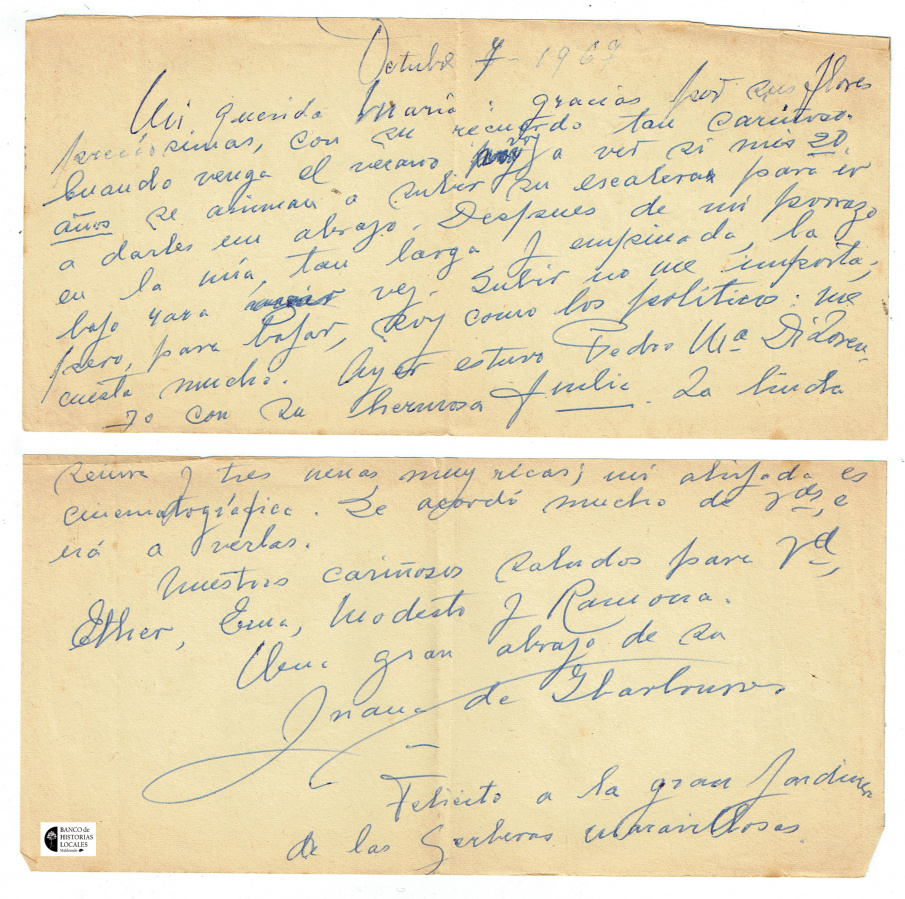 Octubre 7 - 1967
Mi querida María: gracias por sus flores
preciosísimas, con su recuerdo tan cariñoso.
Cuando venga el verano voy a ver si mis 20
años se animan a subir su escalera para ir
a darles un abrazo. Despues de mi porrazo
en la mía, tan larga y empinada, la
bajo rara vez. Subir no me importa;
pero, para bajar, soy como los políticos: me
cuesta mucho. Ayer estuvo Pedro Mª Di Loren-
zo con su hermosa Julia. La linda
señora y tres nenas muy ricas; mi ahijada es
cinematográfica. Se acordó mucho de Vds, e
irá a verlas.
Nuestros cariñosos saludos para Vd,
Ether, Ema, Modesto y Ramona.
Un gran abrazo de su
Juana de Ibarbourou
Felicito a la gran Jardinera
de las Gerberas maravillosas
BANCO de
HISTORIAS
LOCALES
Maldonado